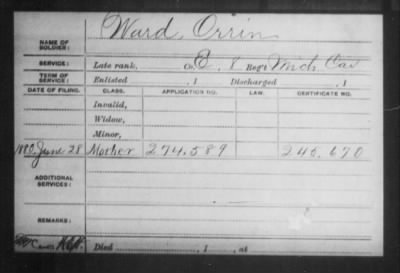 NAME OF SOLDIER: Ward Orrin
SERVICE: Late rank, Co. E, 8 Reg't Mich Cav
TERM OF SERVICE: Enlisted , 1 Discharged , 1
DATE OF FILING. CLASS. APPLICATION NO. LAW. CERTIFICATE NO.
Invalid,
Widow,
Minor,
1880 June 28 Mother 274.589 246.670
ADDITIONAL SERVICES:
REMARKS:
Died , 1 , at